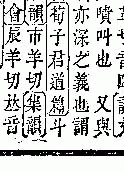 噴叫也 又與
亦深之義也謂
荀子君道篇斗
韻市羊切集韻
會辰羊切𠀤音